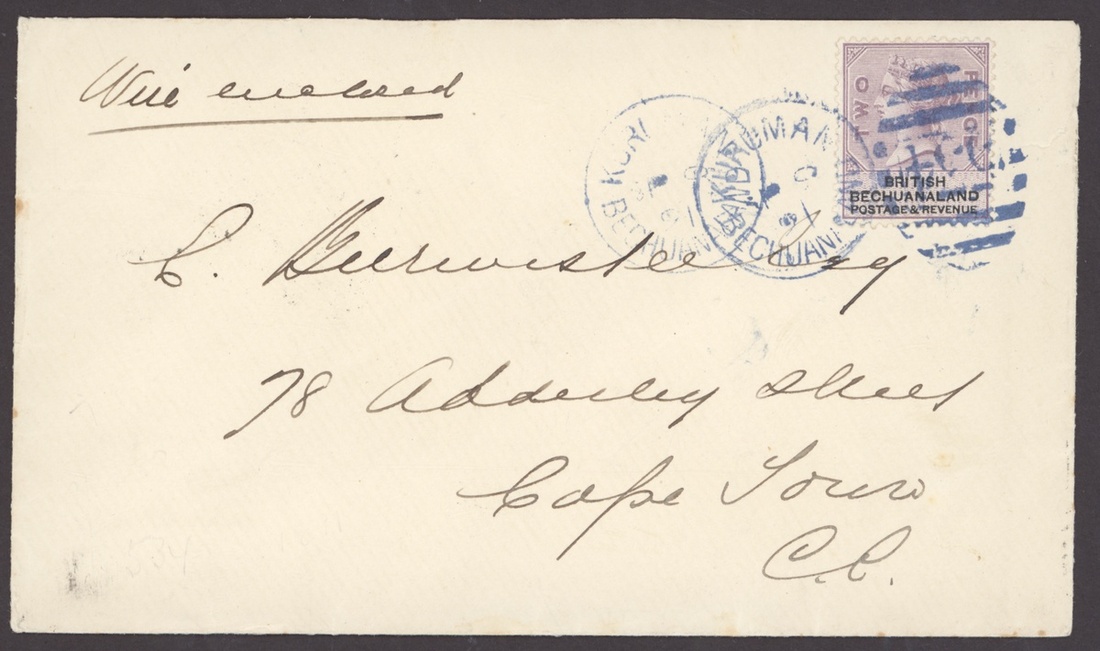 Wire enclosed
TWO PENCE
BRITISH
BECHUANALAND
POSTAGE & REVENUE
KURUMAN
BECHUANALAND
C. Burmester Esq
78 Adderley Street
Cape Town
C.C.